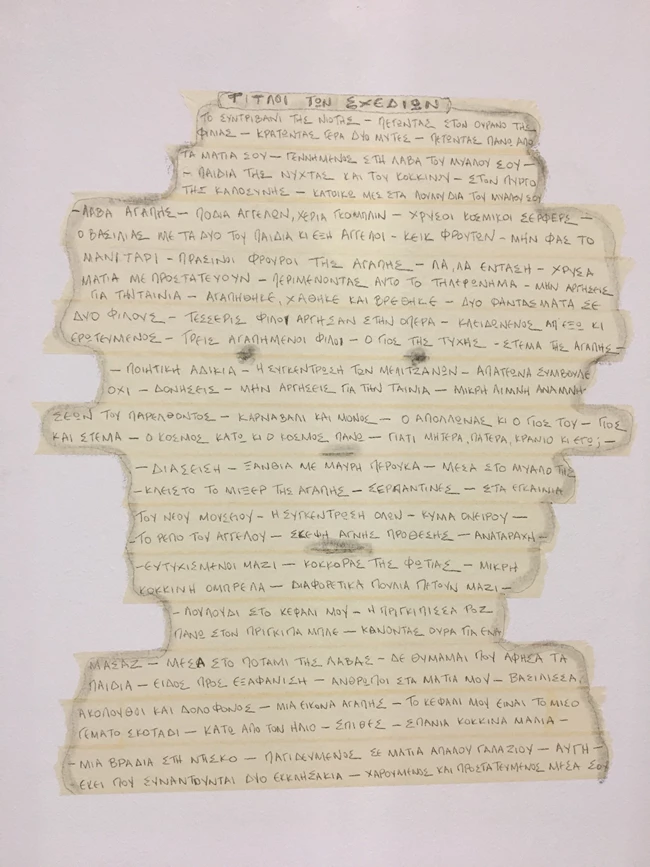 ΤΙΤΛΟΙ ΤΩΝ ΣΧΕΔΙΩΝ
ΤΟ ΣΥΝΤΡΙΒΑΝΙ ΤΗΣ ΝΙΟΤΗΣ – ΠΕΤΩΝΤΑΣ ΣΤΟΝ ΟΥΡΑΝΟ ΤΗΣ
ΦΙΛΙΑΣ – ΚΡΑΤΩΝΤΑΣ ΓΕΡΑ ΔΥΟ ΜΥΤΕΣ – ΠΕΤΩΝΤΑΣ ΠΑΝΩ ΑΠΟ
ΤΑ ΜΑΤΙΑ ΣΟΥ – ΓΕΝΝΗΜΕΝΟΣ ΣΤΗ ΛΑΒΑ ΤΟΥ ΜΥΑΛΟΥ ΣΟΥ –
– ΠΑΙΔΙΑ ΤΗΣ ΝΥΧΤΑΣ ΚΑΙ ΤΟΥ ΚΟΚΚΙΝΟΥ – ΣΤΟΝ ΠΥΡΓΟ
ΤΗΣ ΚΑΛΟΣΥΝΗΣ – ΚΑΤΟΙΚΩ ΜΕΣ ΣΤΑ ΛΟΥΛΟΥΔΙΑ ΤΟΥ ΜΥΑΛΟΥ ΣΟΥ
– ΛΑΒΑ ΑΓΑΠΗΣ – ΠΟΔΙΑ ΑΓΓΕΛΩΝ, ΧΕΡΙΑ ΓΚΟΜΠΛΙΝ – ΧΡΥΣΟΙ ΚΟΣΜΙΚΟΙ ΣΕΡΦΕΡΣ –
Ο ΒΑΣΙΛΙΑΣ ΜΕ ΤΑ ΔΥΟ ΤΟΥ ΠΑΙΔΙΑ ΚΙ ΕΞΗ ΑΓΓΕΛΟΙ – ΚΕΙΚ ΦΡΟΥΤΩΝ – ΜΗΝ ΦΑΣ ΤΟ
ΜΑΝΙΤΑΡΙ – ΠΡΑΣΙΝΟΙ ΦΡΟΥΡΟΙ ΤΗΣ ΑΓΑΠΗΣ – ΛΑ, ΛΑ ΕΝΤΑΣΗ – ΧΡΥΣΑ
ΜΑΤΙΑ ΜΕ ΠΡΟΣΤΑΤΕΥΟΥΝ – ΠΕΡΙΜΕΝΟΝΤΑΣ ΑΥΤΟ ΤΟ ΤΗΛΕΦΩΝΗΜΑ – ΜΗΝ ΑΡΓΗΣΕΙΣ
ΓΙΑ ΤΗΝ ΤΑΙΝΙΑ – ΑΓΑΠΗΘΗΚΕ, ΧΑΘΗΚΕ ΚΑΙ ΒΡΕΘΗΚΕ – ΔΥΟ ΦΑΝΤΑΣΜΑΤΑ ΣΕ
ΔΥΟ ΦΙΛΟΥΣ – ΤΕΣΣΕΡΙΣ ΦΙΛΟΙ ΑΡΓΗΣΑΝ ΣΤΗΝ ΟΠΕΡΑ – ΚΛΕΙΔΩΜΕΝΟΣ ΑΠ ΕΞΩ ΚΙ
ΕΡΩΤΕΥΜΕΝΟΣ – ΤΡΕΙΣ ΑΓΑΠΗΜΕΝΟΙ ΦΙΛΟΙ – Ο ΓΙΟΣ ΤΗΣ ΤΥΧΗΣ – ΣΤΕΜΑ ΤΗΣ ΑΓΑΠΗΣ –
– ΠΟΙΗΤΙΚΗ ΑΔΙΚΙΑ – Η ΣΥΓΚΕΝΤΡΩΣΗ ΤΩΝ ΜΕΛΙΤΖΑΝΩΝ – ΑΠΑΤΕΩΝΑ ΣΥΜΒΟΥΛΕ
ΟΧΙ – ΔΟΝΗΣΕΙΣ – ΜΗΝ ΑΡΓΗΣΕΙΣ ΓΙΑ ΤΗΝ ΤΑΙΝΙΑ – ΜΙΚΡΗ ΛΙΜΝΗ ΑΝΑΜΝΗ-
ΣΕΩΝ ΤΟΥ ΠΑΡΕΛΘΟΝΤΟΣ – ΚΑΡΝΑΒΑΛΙ ΚΑΙ ΜΟΝΟΣ – Ο ΑΠΟΛΛΩΝΑΣ ΚΙ Ο ΓΙΟΣ ΤΟΥ – ΓΙΟΣ
ΚΑΙ ΣΤΕΜΑ – Ο ΚΟΣΜΟΣ ΚΑΤΩ ΚΙ Ο ΚΟΣΜΟΣ ΠΑΝΩ – ΓΙΑΤΙ ΜΗΤΕΡΑ, ΠΑΤΕΡΑ, ΚΡΑΝΙΟ ΚΙ ΕΓΩ; –
– ΔΙΑΣΕΙΣΗ – ΞΑΝΘΙΑ ΜΕ ΜΑΥΡΗ ΠΕΡΟΥΚΑ – ΜΕΣΑ ΣΤΟ ΜΥΑΛΟ ΤΗΣ
– ΚΛΕΙΣΤΟ ΤΟ ΜΙΞΕΡ ΤΗΣ ΑΓΑΠΗΣ – ΣΕΡΠΑΝΤΙΝΕΣ – ΣΤΑ ΕΓΚΑΙΝΙΑ
ΤΟΥ ΝΕΟΥ ΜΟΥΣΕΙΟΥ – Η ΣΥΓΚΕΝΤΡΩΣΗ ΟΛΩΝ – ΚΥΜΑ ΟΝΕΙΡΟΥ –
– ΤΟ ΡΕΠΟ ΤΟΥ ΑΓΓΕΛΟΥ – ΣΚΕΨΗ ΑΓΝΗΣ ΠΡΟΘΕΣΗΣ – ΑΝΑΤΑΡΑΧΗ –
– ΕΥΤΥΧΙΣΜΕΝΟΙ ΜΑΖΙ – ΚΟΚΚΟΡΑΣ ΤΗΣ ΦΩΤΙΑΣ – ΜΙΚΡΗ
ΚΟΚΚΙΝΗ ΟΜΠΡΕΛΑ – ΔΙΑΦΟΡΕΤΙΚΑ ΠΟΥΛΙΑ ΠΕΤΟΥΝ ΜΑΖΙ –
– ΛΟΥΛΟΥΔΙ ΣΤΟ ΚΕΦΑΛΙ ΜΟΥ – Η ΠΡΙΓΚΙΠΙΣΣΑ ΡΟΖ
ΠΑΝΩ ΣΤΟΝ ΠΡΙΓΚΙΠΑ ΜΠΛΕ – ΚΑΝΟΝΤΑΣ ΟΥΡΑ ΓΙΑ ΕΝΑ
ΜΑΣΑΖ – ΜΕΣΑ ΣΤΟ ΠΟΤΑΜΙ ΤΗΣ ΛΑΒΑΣ – ΔΕ ΘΥΜΑΜΑΙ ΠΟΥ ΑΦΗΣΑ ΤΑ
ΠΑΙΔΙΑ – ΕΙΔΟΣ ΠΡΟΣ ΕΞΑΦΑΝΙΣΗ – ΑΝΘΡΩΠΟΙ ΣΤΑ ΜΑΤΙΑ ΜΟΥ – ΒΑΣΙΛΙΣΣΑ,
ΑΚΟΛΟΥΘΟΙ ΚΑΙ ΔΟΛΟΦΟΝΟΣ – ΜΙΑ ΕΙΚΟΝΑ ΑΓΑΠΗΣ – ΤΟ ΚΕΦΑΛΙ ΜΟΥ ΕΙΝΑΙ ΤΟ ΜΙΣΟ
ΓΕΜΑΤΟ ΣΚΟΤΑΔΙ – ΚΑΤΩ ΑΠΟ ΤΟΝ ΗΛΙΟ – ΣΠΙΘΕΣ – ΣΠΑΝΙΑ ΚΟΚΚΙΝΑ ΜΑΛΙΑ –
– ΜΙΑ ΒΡΑΔΙΑ ΣΤΗ ΝΤΙΣΚΟ – ΠΑΓΙΔΕΥΜΕΝΟΣ ΣΕ ΜΑΤΙΑ ΑΠΑΛΟΥ ΓΑΛΑΖΙΟΥ – ΑΥΓΗ –
– ΕΚΕΙ ΠΟΥ ΣΥΝΑΝΤΟΥΝΤΑΙ ΔΥΟ ΕΚΚΛΗΣΑΚΙΑ – ΧΑΡΟΥΜΕΝΟΣ ΚΑΙ ΠΡΟΣΤΑΤΕΥΜΕΝΟΣ ΜΕΣΑ ΣΟΥ